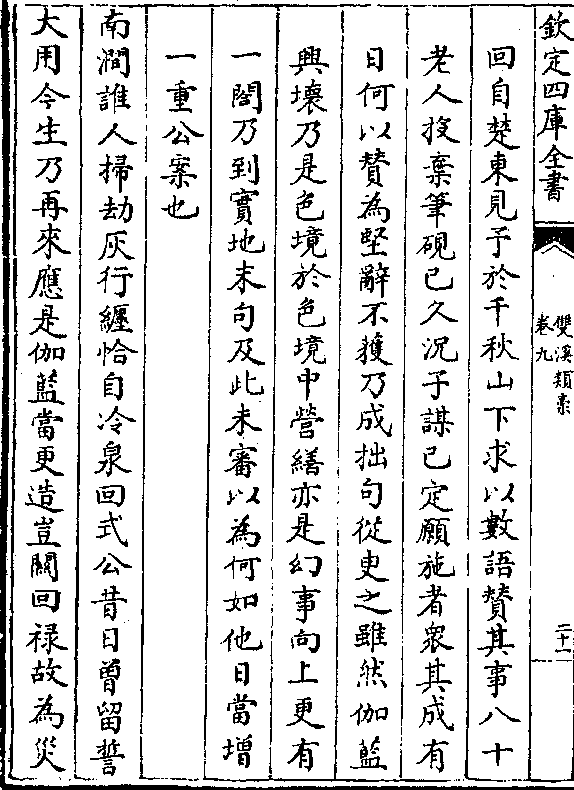 欽定四庫全書
雙溪類稾
卷九
二十一
回自楚東見予於千秋山下求以數語賛其事八十
老人投棄筆硯已久況子謀已定願施者衆其成有
日何以賛為堅辭不獲乃成拙句從㬰之雖然伽藍
興壞乃是色境於色境中營繕亦是幻事向上更有
一闗乃到實地末句及此未審以為何如他日當增
一重公案也
南澗誰人掃劫灰行纏恰自冷泉回式公昔日曽留誓
大用今生乃再來應是伽藍當更造豈關回禄故為災